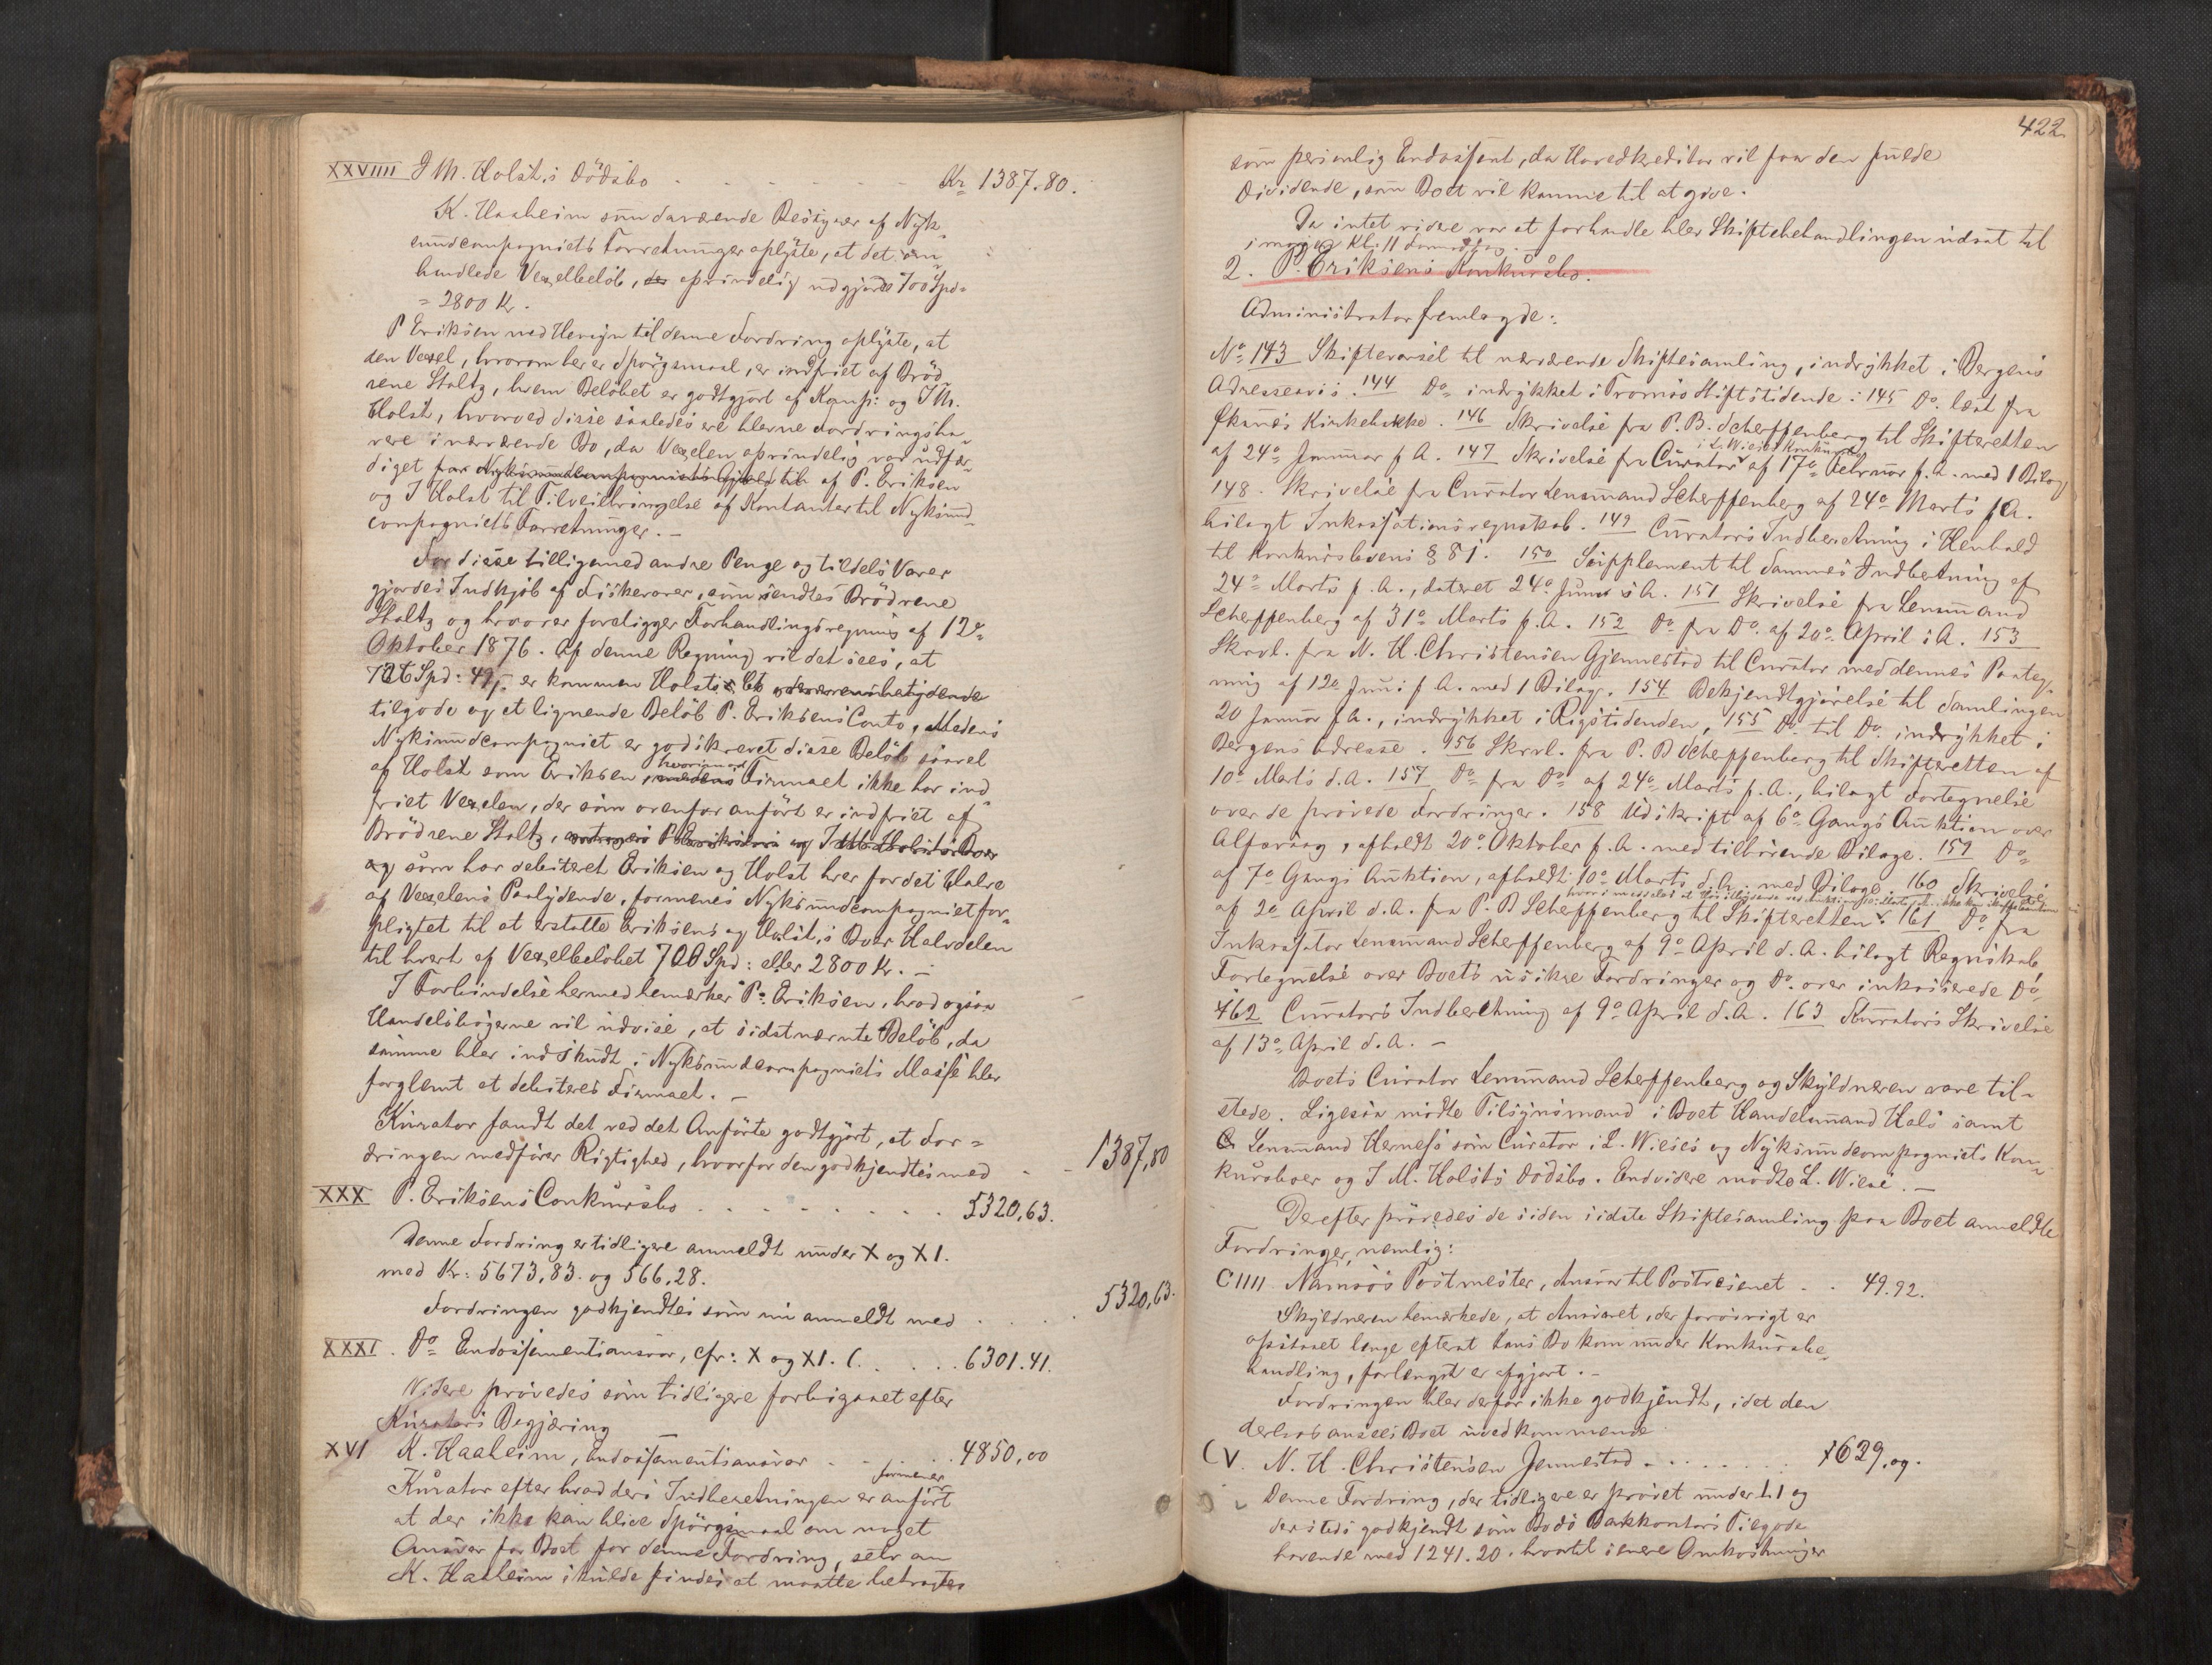 XXVIIII J M. Holsts Dödsbo - - - - - - - Kr 1387.80.
K. Haaheim som daværende Bestyrer af Nyk-
sundcompagniets Forretninger oplyste, at det om-
handlede Vexelbeløb, der oprindelig udgjorde 700 Spd =
= 2800 Kr.
P Eriksen med Hensyn til denne Fordring oplyste, at
den Vexel, hvorom her er Spørgsmaal, er indfriet af Brød
rene Stoltz, hvem Beløbet er godtgjort af Komp: og J M.
Holst, hvorved disse saaledes ere blevne Fordringsha-
vere i nærværende Bo, da Vexelen oprindelig var udfær-
diget for Nyksundcompagniets til af P. Eriksen
og J Holst til Tilveiebringelse af Kontanter til Nyksund-
compagniets Forretninger. -
For disse tilligemed andre Penge og tildels Varer
gjordes Indkjøb af Fiskevarer, som sendtes Brødrene
Stoltz og hvorover foreligger Forhandlingsregning af 12te
Oktober 1876. Af denne Regning vil det sees, at
726 Spd: 49 er kommen Holsts Bo
tilgode og et lignende Beløb P. Eriksens Conto, Medens
Nyksundcompagniet er godskrevet disse Beløb saavel
af Holst som Eriksen, hvorimod Firmaet ikke har ind-
friet Vexelen, der som ovenfor anført er indfriet af
Brødrene Stoltz,
og som har debiteret Eriksen og Holst hver for det Halve
af Vexelens Paalydende, formenes Nyksundcompagniet for-
pligtet til at erstatte Eriksens og Holsts Boer Halvdelen
til hvert af Vexelbeløbet 700 Spd: eller 2800 Kr. -
I Forbindelse hermed bemærker P. Eriksen, hvad ogsaa
Handelsbøgerne vil udvise, at sidstnævnte Beløb, da
samme blev indskudt i Nyksundcompagniets Masse blev
forglemt at debiteres Firmaet. -
Kurator fandt det ved det Anførte godtgjort, at For-
dringen medfører Rigtighed, hvorfor den godkjendtes med - - 1387,80
XXX P. Eriksens Conkursbo - - - - - - - - 5320,63.
Denne Fordring er tidligere anmeldt under X og XI.
med Kr: 5673,83. og 566,28.
Fordringen godkjendtes som nu anmeldt med . . . . . 5320,63.
XXXI. Do Endossementsansvar, cfr: X og XI. (. . . . . 6301.41.
Videre prøvedes som tidligere forbigaaet efter
Kurators Begjæring
XVI K. Haaheim, Endossementsansvar - - . . 4850,00
Kurator formener efter hvad der i Indberetningen er anført
at der ikke kan blive Spørgsmaal om noget
Ansvar for Boet for denne Fordring, selv om
K. Haaheim skulde findes at maatte betragtes
422.
som personlig Endossent, da Hovedkreditor vil faa den fulde
Dividende, som Boet vil komme til at give.
Da intet videre var at forhandle blev Skiftebehandlingen udsat til
imorgen Kl. 11 Formiddag. -
2. P. Eriksens Konkursbo.
Administrator fremlagde:
No 143 Skiftevarsel til nærværende Skiftesamling, indrykket i Bergens
Adresseavis. 144 Do indrykket i Tromsø Stiftstidende. 145 Do. læst fra
Øksnes Kirkebakke. 146 Skrivelse fra P. B. Scheffenberg til Skifteretten
af 24de Januar f A. 147 Skrivelse fra Curator i L. Wieses Konkursbo af 17de Februar f. A. med 1 Bilag
148. Skrivelse fra Curator Lensmand Scheffenberg af 24de Marts f A.
bilagt Inkassationsregnskab. 149 Curators Indberetning i Henhold
til Konkurslovens § 81. 150 Supplement til Sammes Indberetning af
24de Marts f. A., dateret 24de Juni s A. 151 Skrivelse fra Lensmand
Scheffenberg af 31te Marts f. A. 152 Do fra Do. af 20de April s A. 153
Skrvl. fra N. H. Christensen Gjennestad til Curator med dennes Paateg-
ning af 12te Juni f A. med 1 Bilag. 154 Bekjendtgjørelse til Samlingen
20 Januar f A., indrykket i Rigstidenden, 155 Do. til Do. indrykket i
Bergens Adresse. 156 Skrvl. fra P. B Scheffenberg til Skifteretten af
10de Marts d. A. 157 Do fra Do af 24de Marts f. A., bilagt Fortegnelse
over de prøvede Fordringer. 158 Udskrift af 6te Gangs Auktion over
Alfsvaag, afholdt 20de Oktober f. A. med tilhørende Bilage. 159 Do
af 7de Gangs Auktion, afholdt 10de Marts d. A. med Bilage. 160 Skrivelse
af 2den April d. A. fra P. B Scheffenberg til Skifteretten. 161 Do fra
Inkassator Lensmand Scheffenberg af 9de April d. A. bilagt Regnskab,
Fortegnelse over Boets usikre Fordringer og Do. over inkasserede Do.
162 Curators Indberetning af 9de April d. A. 163 Kurators Skrivelse
af 13de April d. A. -
Boets Curator Lensmand Scheffenberg og Skyldneren vare til-
stede. Ligesaa mødte Tilsynsmand i Boet Handelsmand Hals samt
Lensmand Herness som Curator i L. Wieses og Nyksundcompagniets Kon-
kursboer og J M. Holsts Dödsbo. Endvidere mødte L. Wiese. -
Derefter prøvedes de siden sidste Skiftesamling paa Boet anmeldte
Fordringer, nemlig:
CIIII Namsos Postmester, Ansvar til Postvæsenet . . 49.92.
Skyldneren bemærkede, at Ansvaret, der forøvrigt er
opstaaet længe efterat hans Bo kom under Konkursbe-
handling, forlængst er afgjort. -
Fordringen blev derfor ikke godkjendt, idet den
derhos ansees Boet uvedkommende
CV. N. H. Christensen Jennestad - . . . . . . . 1629.09.
Denne Fordring, der tidligere er prøvet under LI og
dersteds godkjendt som Bodø Bankkontors Tilgode
havende med 1241.20. hvortil senere Omkostninger